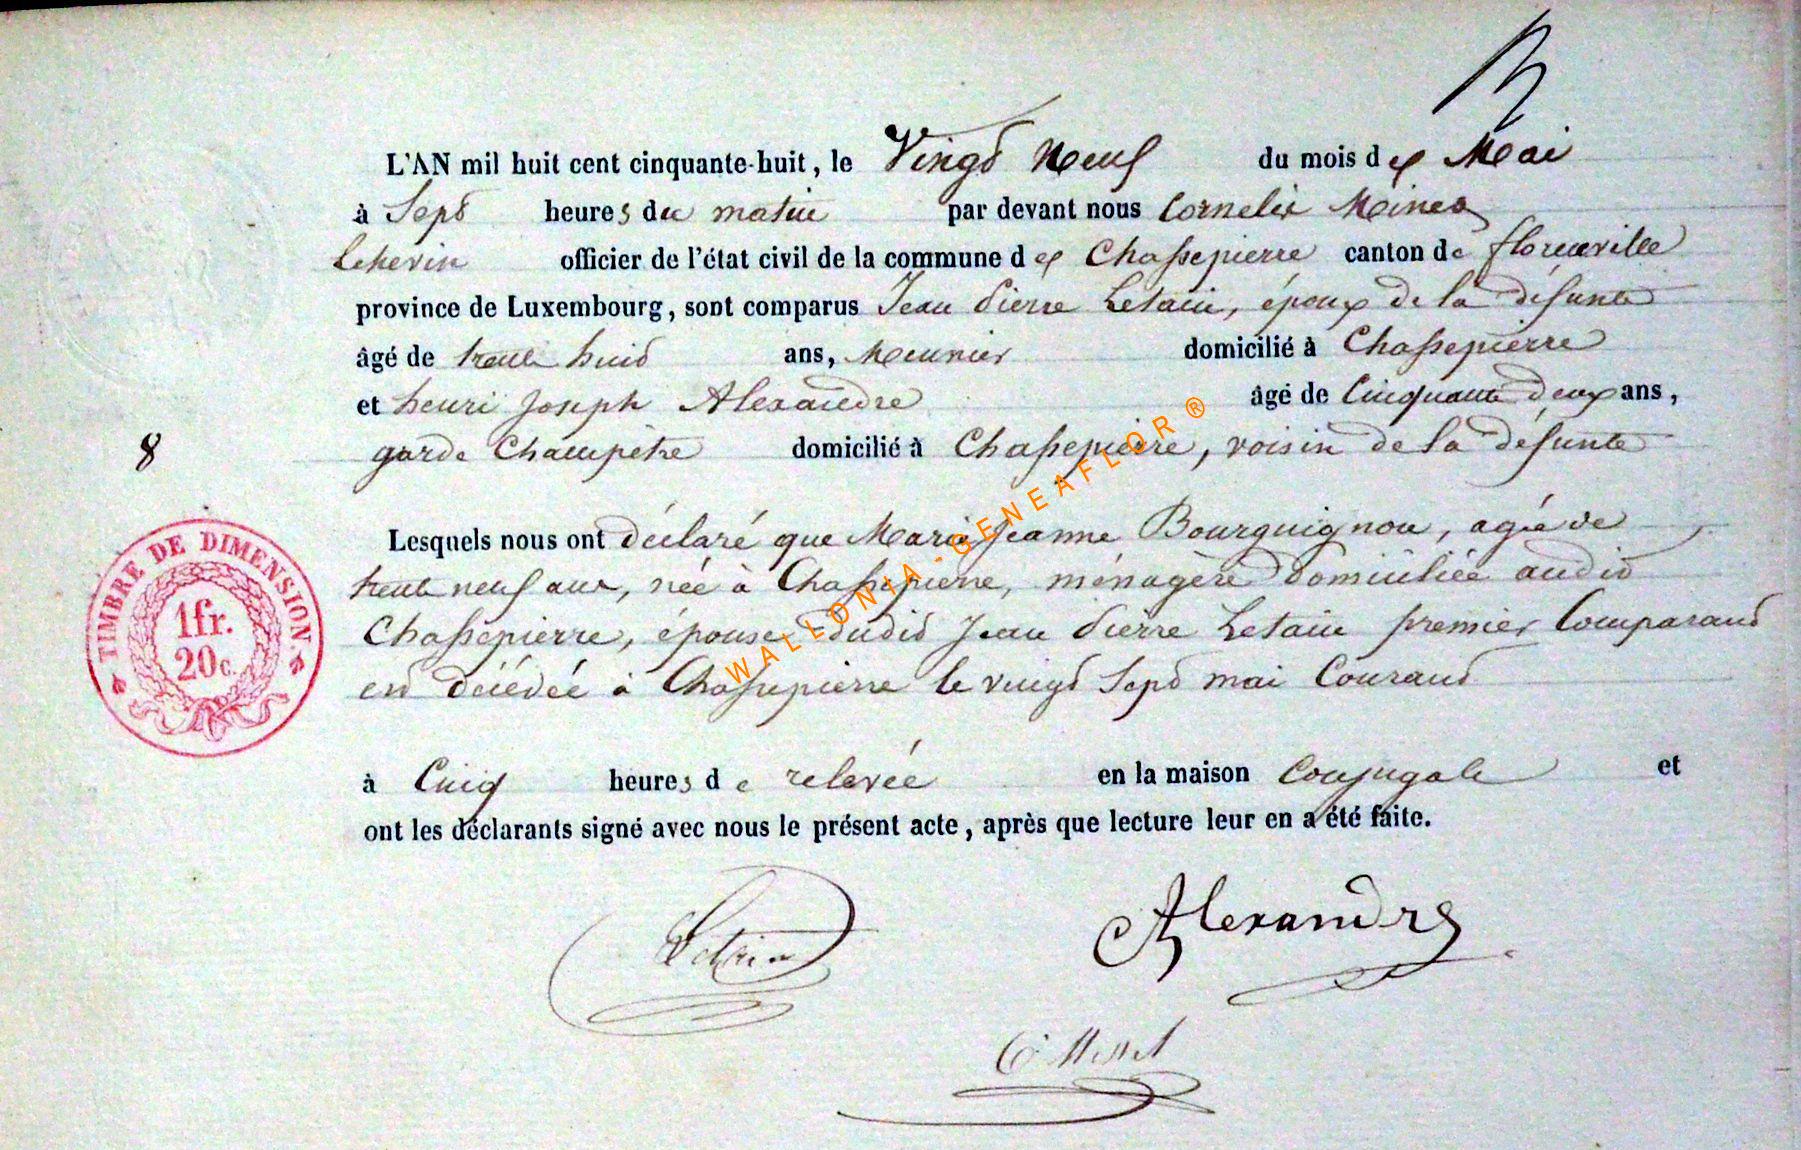 L'AN mil huit cent cinquante-huit, le Vingt neuf du mois de Mai
à Sept heures du matin par devant nous Cornelis
Echevin officier de l'état civil de la commune de Chassepierre canton de florenville
province de Luxembourg, sont comparus Jean Pierre Letain, époux de la défunte
âgé de trente huit ans, Meunier domicilié à Chassepierre
et henri Joseph Alexandre âgé de Cinquante deux ans,
garde Champêtre domicilié à Chassepierre, voisin de la défunte
8
Lesquels nous ont déclaré que Marie Jeanne Bourguignon, agée de
trente neuf ans, née à Chassepierre, ménagère domiciliée audit
Chassepierre, épouse dudit Jean Pierre Letain premier Comparant
est décédée à Chassepierre le vingt Sept mai Courant
à Cinq heures de relevée en la maison Conjugale et
ont les déclarants signé avec nous le présent acte, après que lecture leur en a été faite.
TIMBRE DE DIMENSION.
1fr.
20c.
WALLONIA-GENEAFLOR®
Alexandre